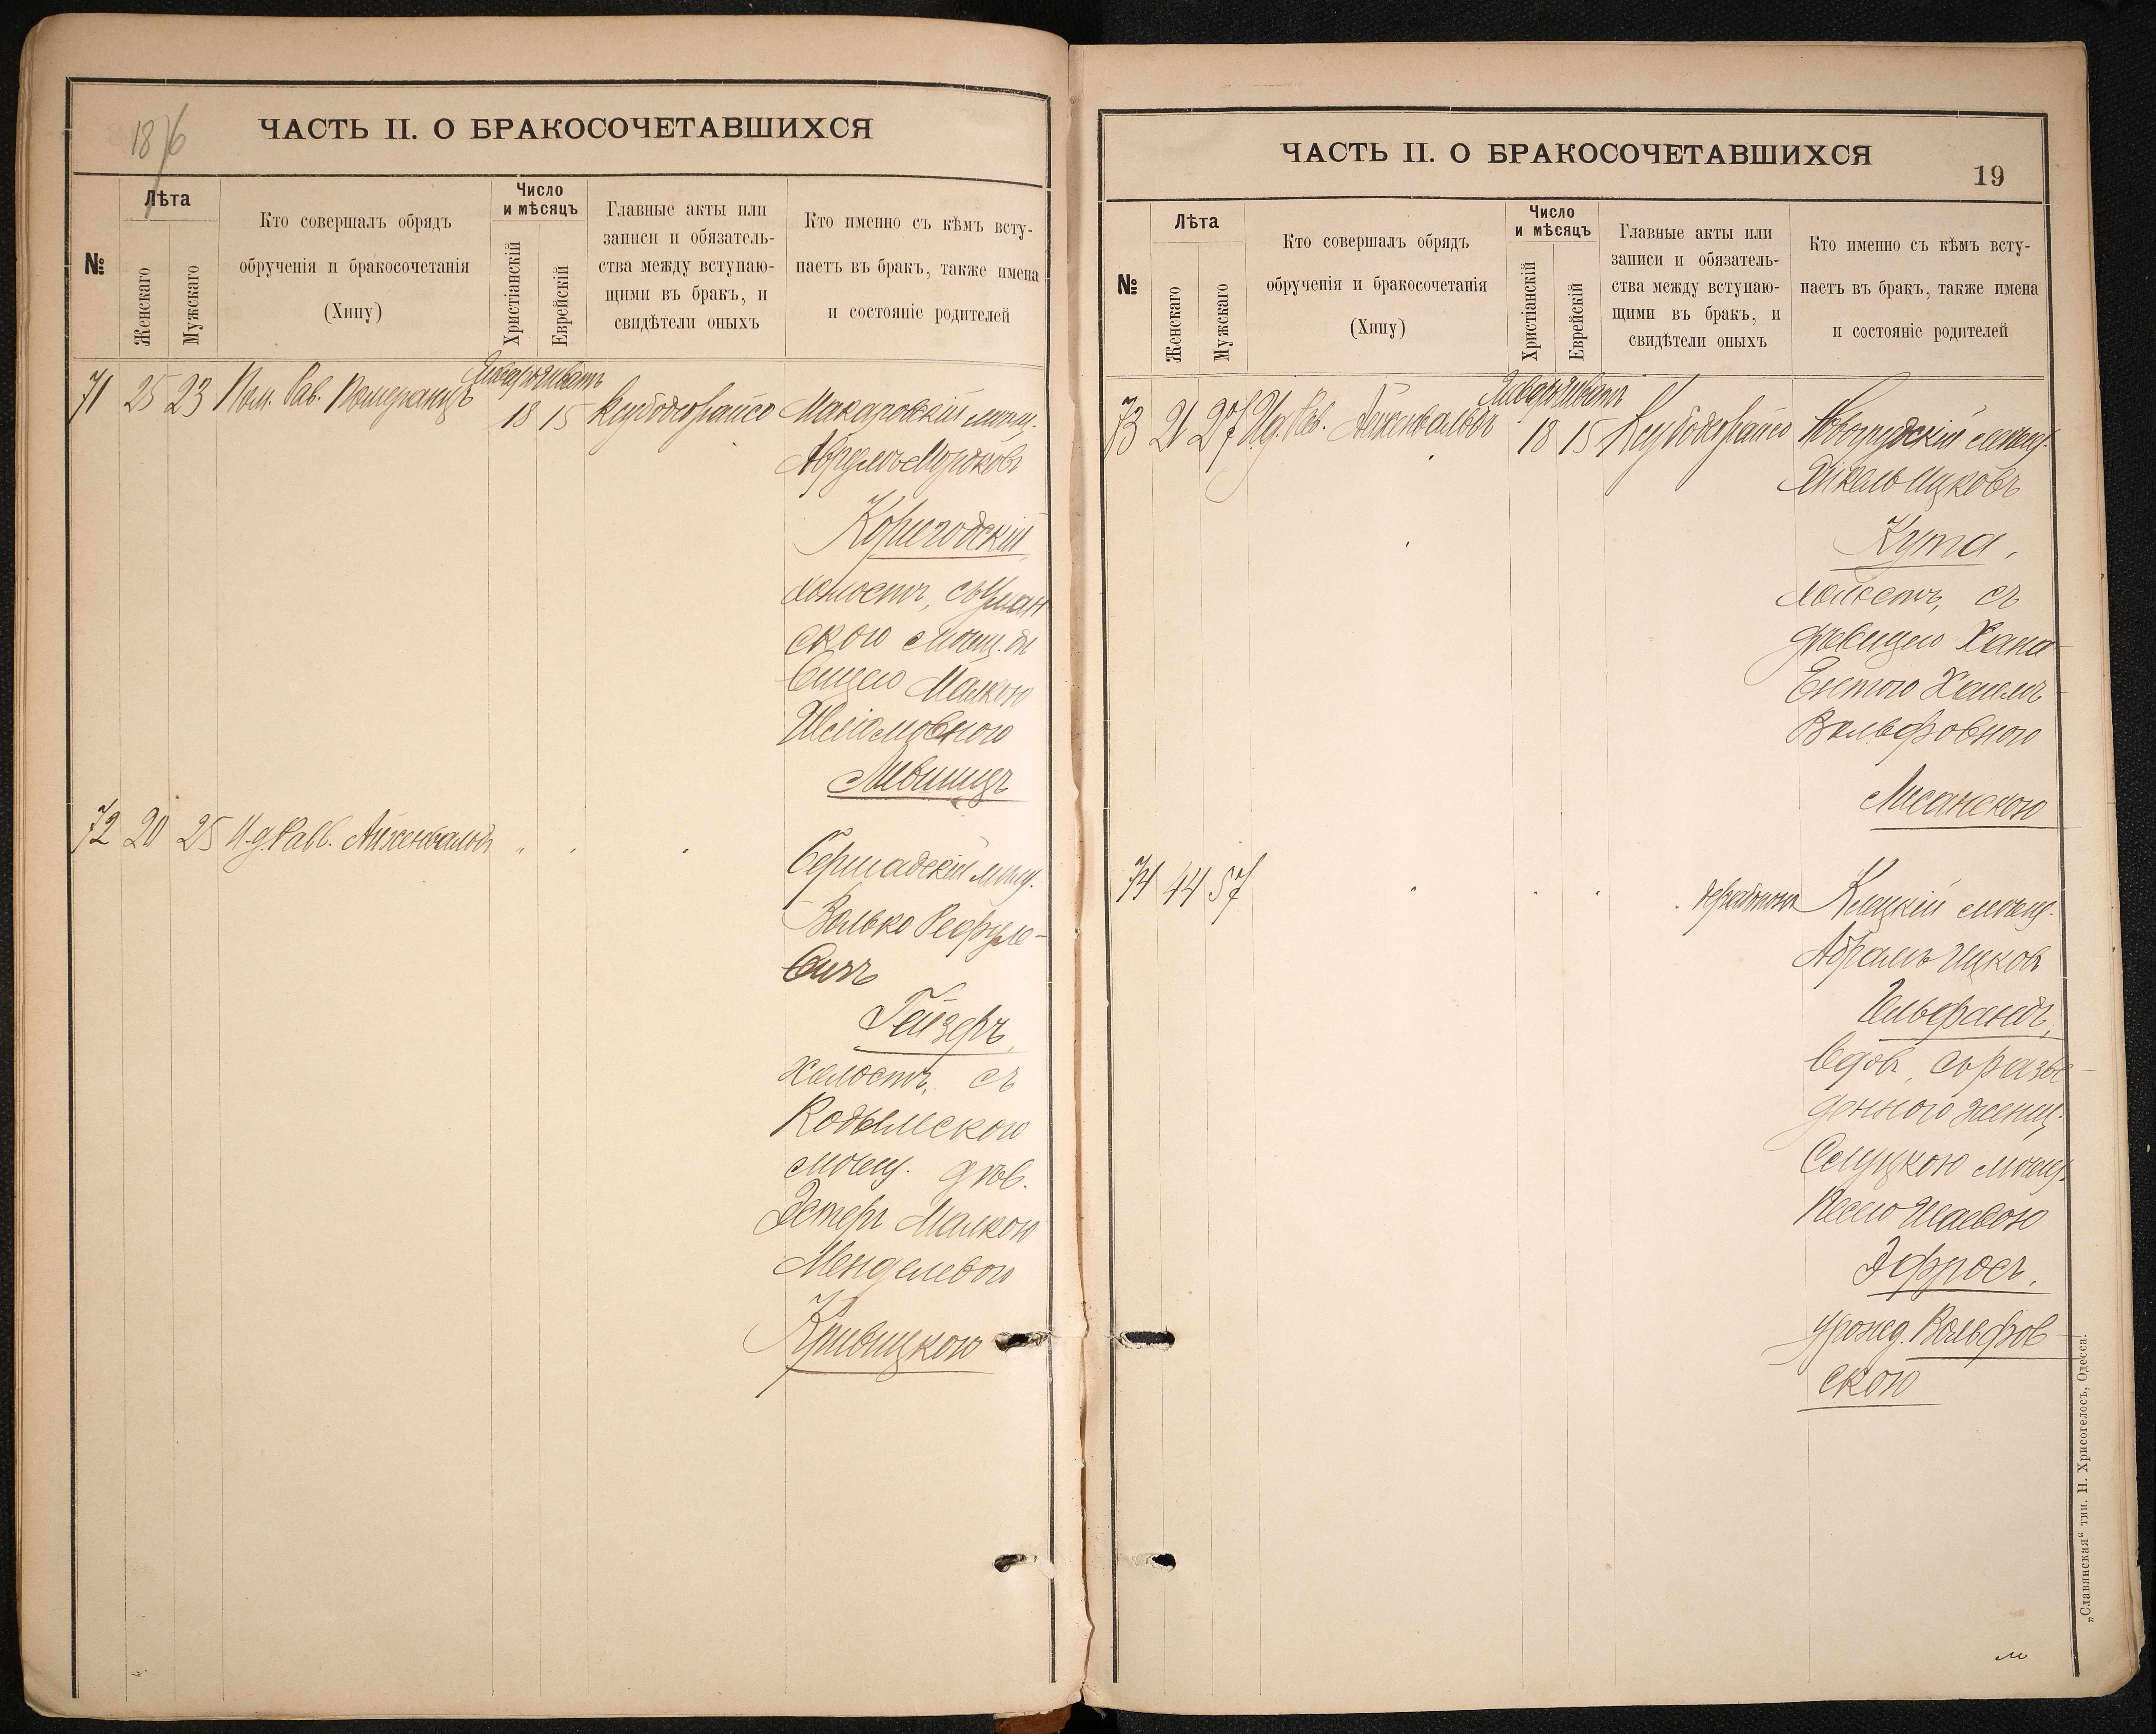 18 76
ЧАСТЬ II. О БРАКОСОЧЕТАВШИХСЯ
№
Лѣта
Женскаго
Мужскаго
Кто совершалъ обрядъ
обрученія и бракосочетанія
(Хипу)
Число
и мѣсяцъ
Христіанскій
Еврейскій
Главные акты или
записи и обязатель-
ства между вступаю-
щими въ бракъ, и
свидѣтели оныхъ
Кто именно съ кѣмъ всту-
паетъ въ бракъ, также имена
и состояніе родителей
71 25 23 Пом. Рав. Померанцъ
Январь Шватъ
18 15
Макаровскій мѣщ.
Абрумъ Мордковъ
холостъ, съ Уман
скою мѣщ. дѣ
вицею Малкою
Шліомовною
Лившицъ
72 20 25 И.д. Равв. Айженвальдъ
Бершадскій мѣщ.
Волько Рефуле-
вичъ
Гейзеръ,
холостъ, съ
Кодымскою
мѣщ. дѣв.
Эстеръ Малкою
Менделевою
Кривицкою
ЧАСТЬ II. О БРАКОСОЧЕТАВШИХСЯ
19
№
Лѣта
Женскаго
Мужскаго
Кто совершалъ обрядъ
обрученія и бракосочетанія
(Хипу)
Число
и мѣсяцъ
Христіанскій
Еврейскій
Главные акты или
записи и обязатель-
ства между вступаю-
щими въ бракъ, и
свидѣтели оныхъ
Кто именно съ кѣмъ всту-
паетъ въ бракъ, также имена
и состояніе родителей
73 21 27 И.д. Рав. Айженвальдъ
Январь Шватъ
18 15
Новогрудскій мѣщ.
Янкель Ицковъ
Кута,
холостъ, съ
дѣвицею Хана-
Ентою Хаимъ-
Вольфовною
Лисанскою
74 44 57
Клецкій мѣщ.
Абрамъ Ицковъ
Гельфандъ,
вдов, съ разве-
денною женщ.
Слуцкою мѣщ.
Песею Исаевою
Эфросъ,
урожд. Вольфов
скою
„Славянская“ тип. Н. Хрисогелосъ, Одесса.